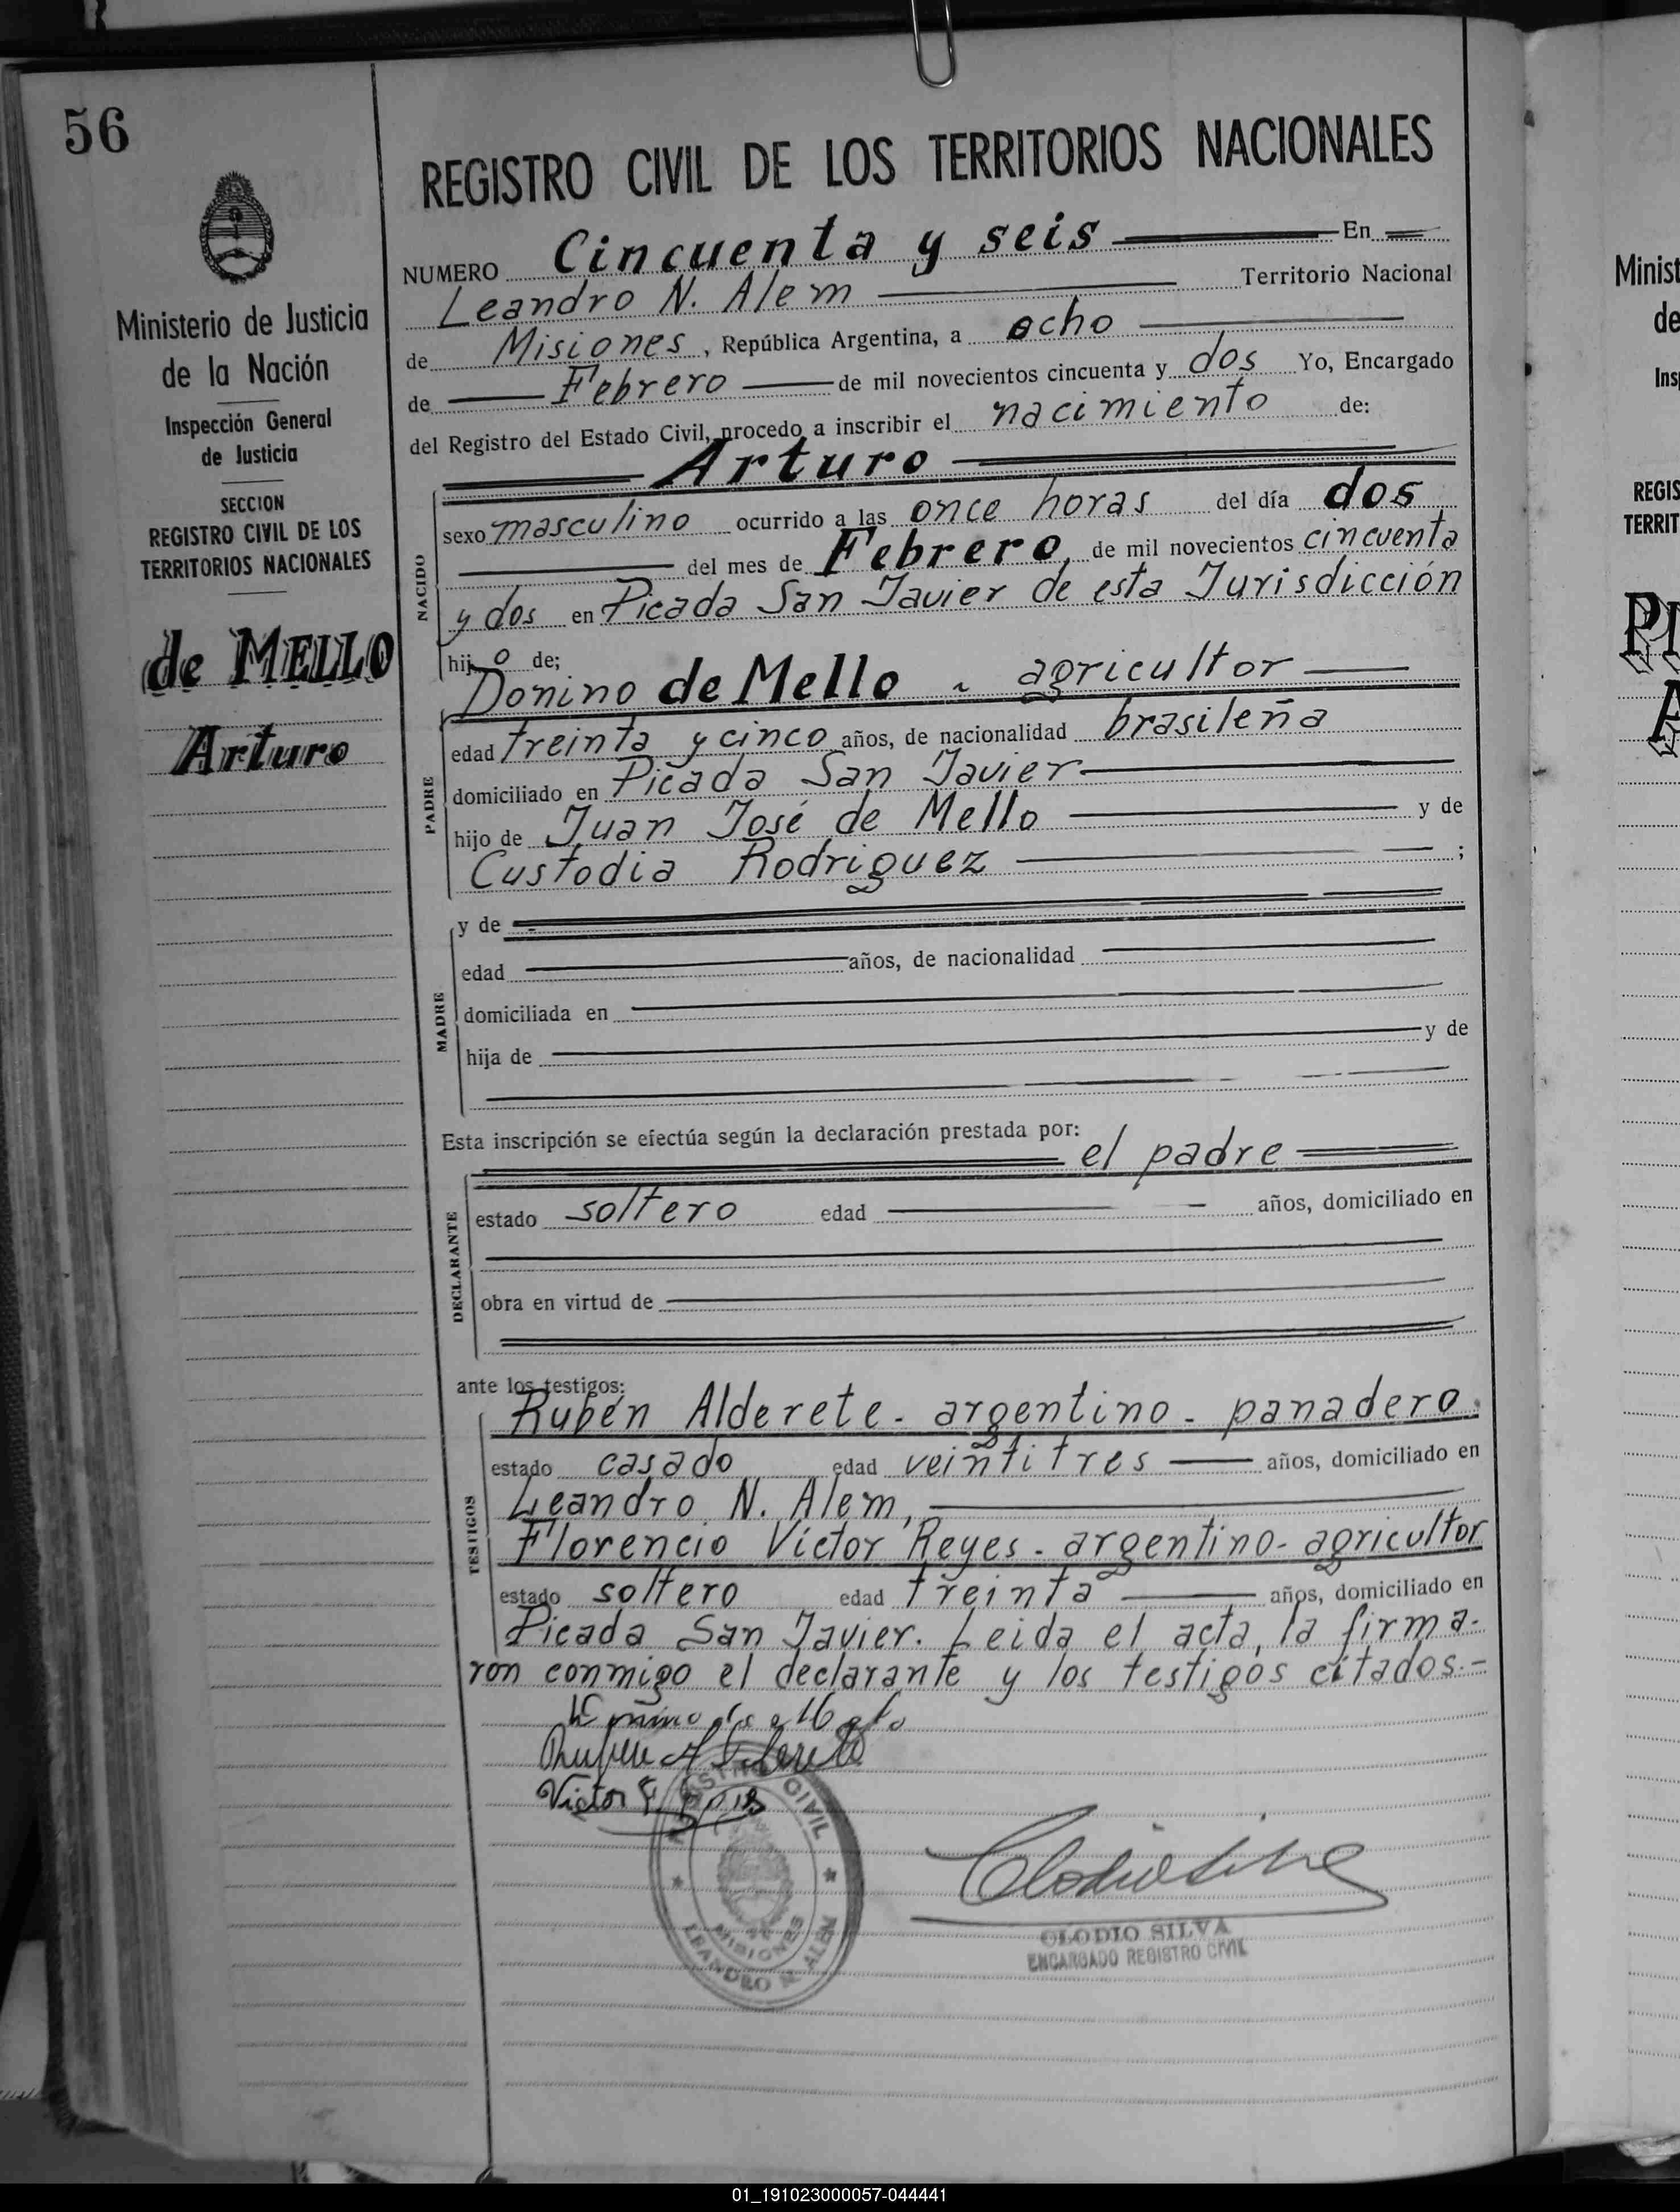 56
REGISTRO CIVIL DE LOS TERRITORIOS NACIONALES
NUMERO Cincuenta y seis En
Leandro N. Alem Territorio Nacional
de Misiones, República Argentina, a ocho
de Febrero de mil novecientos cincuenta y dos Yo, Encargado
del Registro del Estado Civil, procedo a inscribir el nacimiento de:
Arturo
NACIDO
sexo masculino ocurrido a las once horas del día dos
del mes de Febrero, de mil novecientos cincuenta
y dos en Picada San Javier de esta Jurisdicción
hijo de;
Donino de Mello - agricultor
PADRE
edad treinta y cinco años, de nacionalidad brasileña
domiciliado en Picada San Javier
hijo de Juan José de Mello y de
Custodia Rodriguez ;
MADRE
y de
edad años, de nacionalidad
domiciliada en
hija de y de
Esta inscripción se efectúa según la declaración prestada por:
el padre
DECLARANTE
estado soltero edad años, domiciliado en
obra en virtud de
ante los testigos:
Rubén Alderete - argentino - panadero.
TESTIGOS
estado casado edad veintitres años, domiciliado en
Leandro N. Alem,
Florencio Víctor Reyes - argentino - agricultor
estado soltero edad treinta años, domiciliado en
Picada San Javier. Leida el acta, la firma-
ron conmigo el declarante y los testigos citados.-
Victor F.
REGISTRO CIVIL
MISIONES
LEANDRO N. ALEM
CLODIO SILVA
ENCARGADO REGISTRO CIVIL
Ministerio de Justicia
de la Nación
Inspección General
de Justicia
SECCION
REGISTRO CIVIL DE LOS
TERRITORIOS NACIONALES
de MELLO
Arturo
Minist
de
Insp
REGIS
TERRIT
01_191023000057-044441